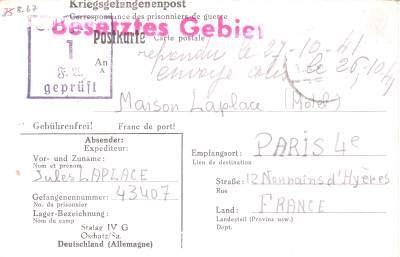 Kriegsgefangenenpost
Correspondance des prisonniers de guerre
Besetztes Gebiet
Postkarte Carte postale
An
A
1
geprüft
répondu le 27-10-41
envoyé colis le 26-10-41
Maison Laplace (Motel)
Gebührenfrei! Franc de port!
Absender:
Expediteur:
Vor- und Zuname:
Nom et prénom
Jules LAPLACE
Gefangenennummer: 43407
No. du prisonnier
Lager-Bezeichnung:
Nom du camp
Stalag IV G
Oschatz/Sa.
Deutschland (Allemagne)
Empfangsort: PARIS 4e
Lieu de destination
Straße: 12 Nonnains d'Hyères
Rue
Land: FRANCE
Landesteil (Provinz usw.)
Dept.